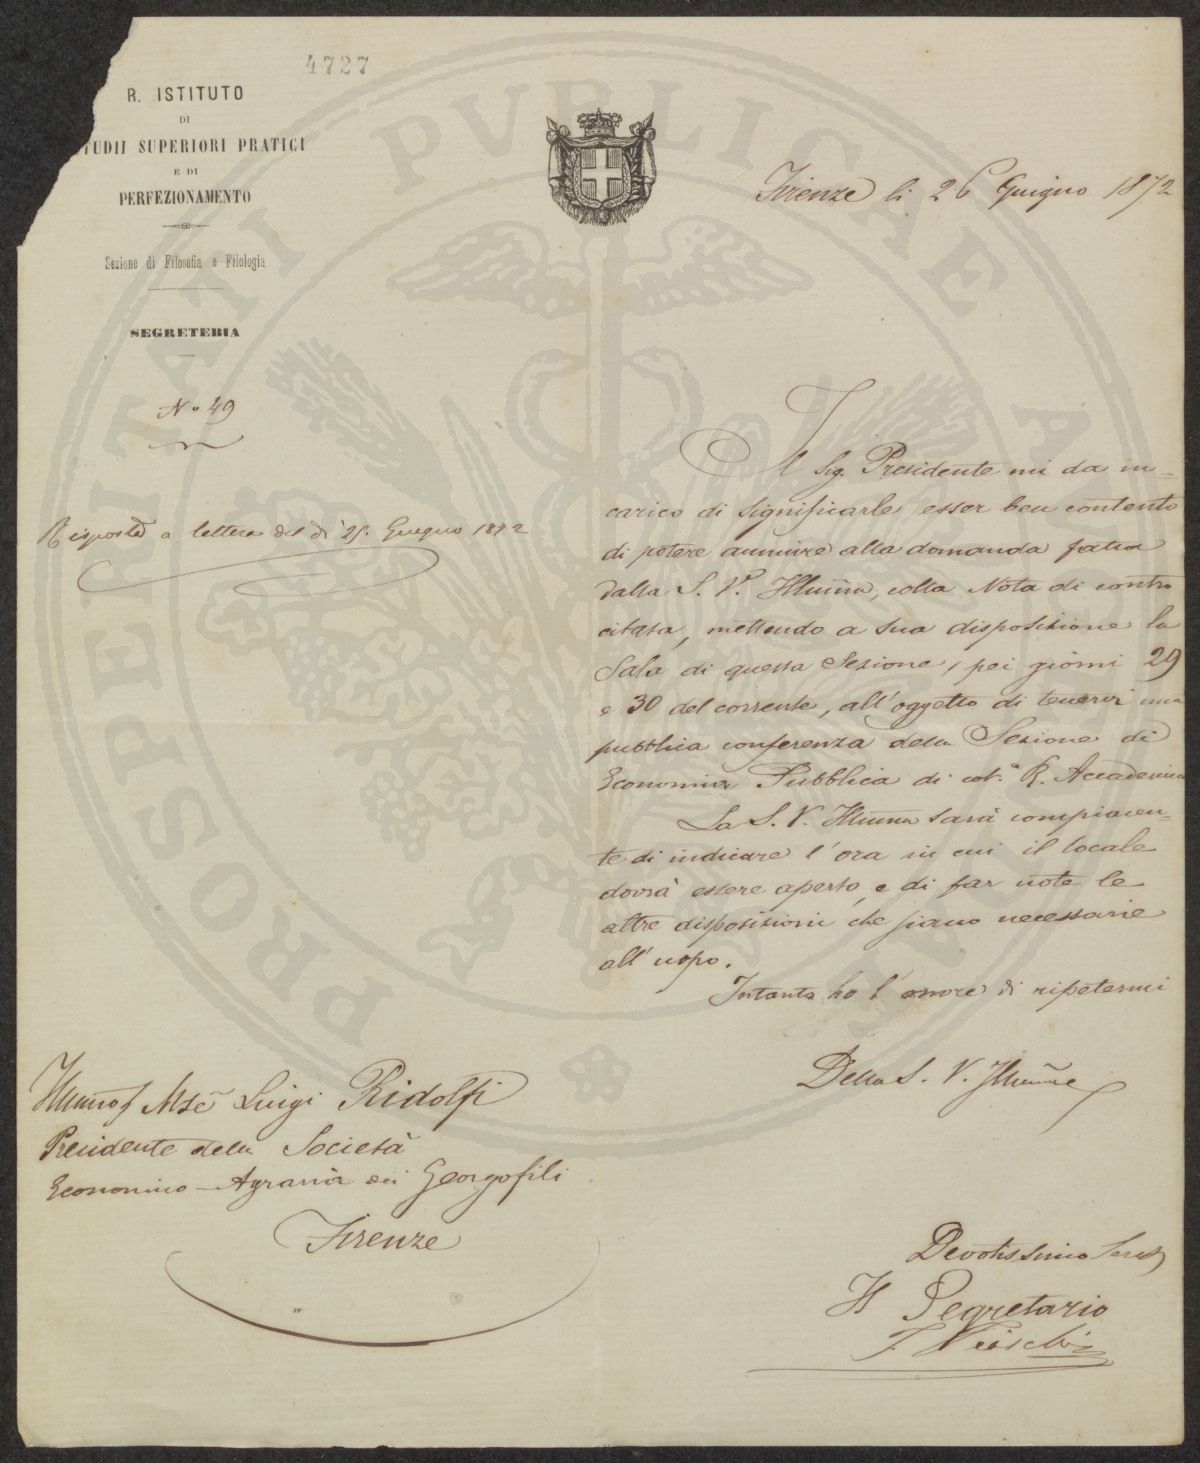 4727
R. ISTITUTO
DI
TUDII SUPERIORI PRATICI
E DI
PERFEZIONAMENTO
Sezione di Filosofia e Filologia
SEGRETERIA
N.o 49
Firenze li 26 Giugno 1872
Risposta a lettera del dì 25. Giugno 1872
Il Sig. Presidente mi da in-
carico di significarle esser ben contento
di potere annuire alla domanda fatta
dalla S. V. Illuma, colla Nota di contro
citata, mettendo a sua disposizione la
Sala di questa Sezione, pei giorni 29
e 30 del corrente, all'oggetto di tenervi una
pubblica conferenza della Sezione di
Economia Pubblica di cot.a R. Accademia
La S. V. Illuma sarà compiacen-
te di indicare l'ora in cui il locale
dovrà essere aperto, e di far note le
altre disposizioni che siano necessarie
all'uopo.
Intanto ho l'onore di ripetermi
Della S. V. Illume
Illumo Luigi Ridolfi
Presidente della Società
Economico-Agraria dei Georgofili
Firenze
Devotissimo
Il Segretario
PROSPERITATI PVBLICAE AVGENDAE